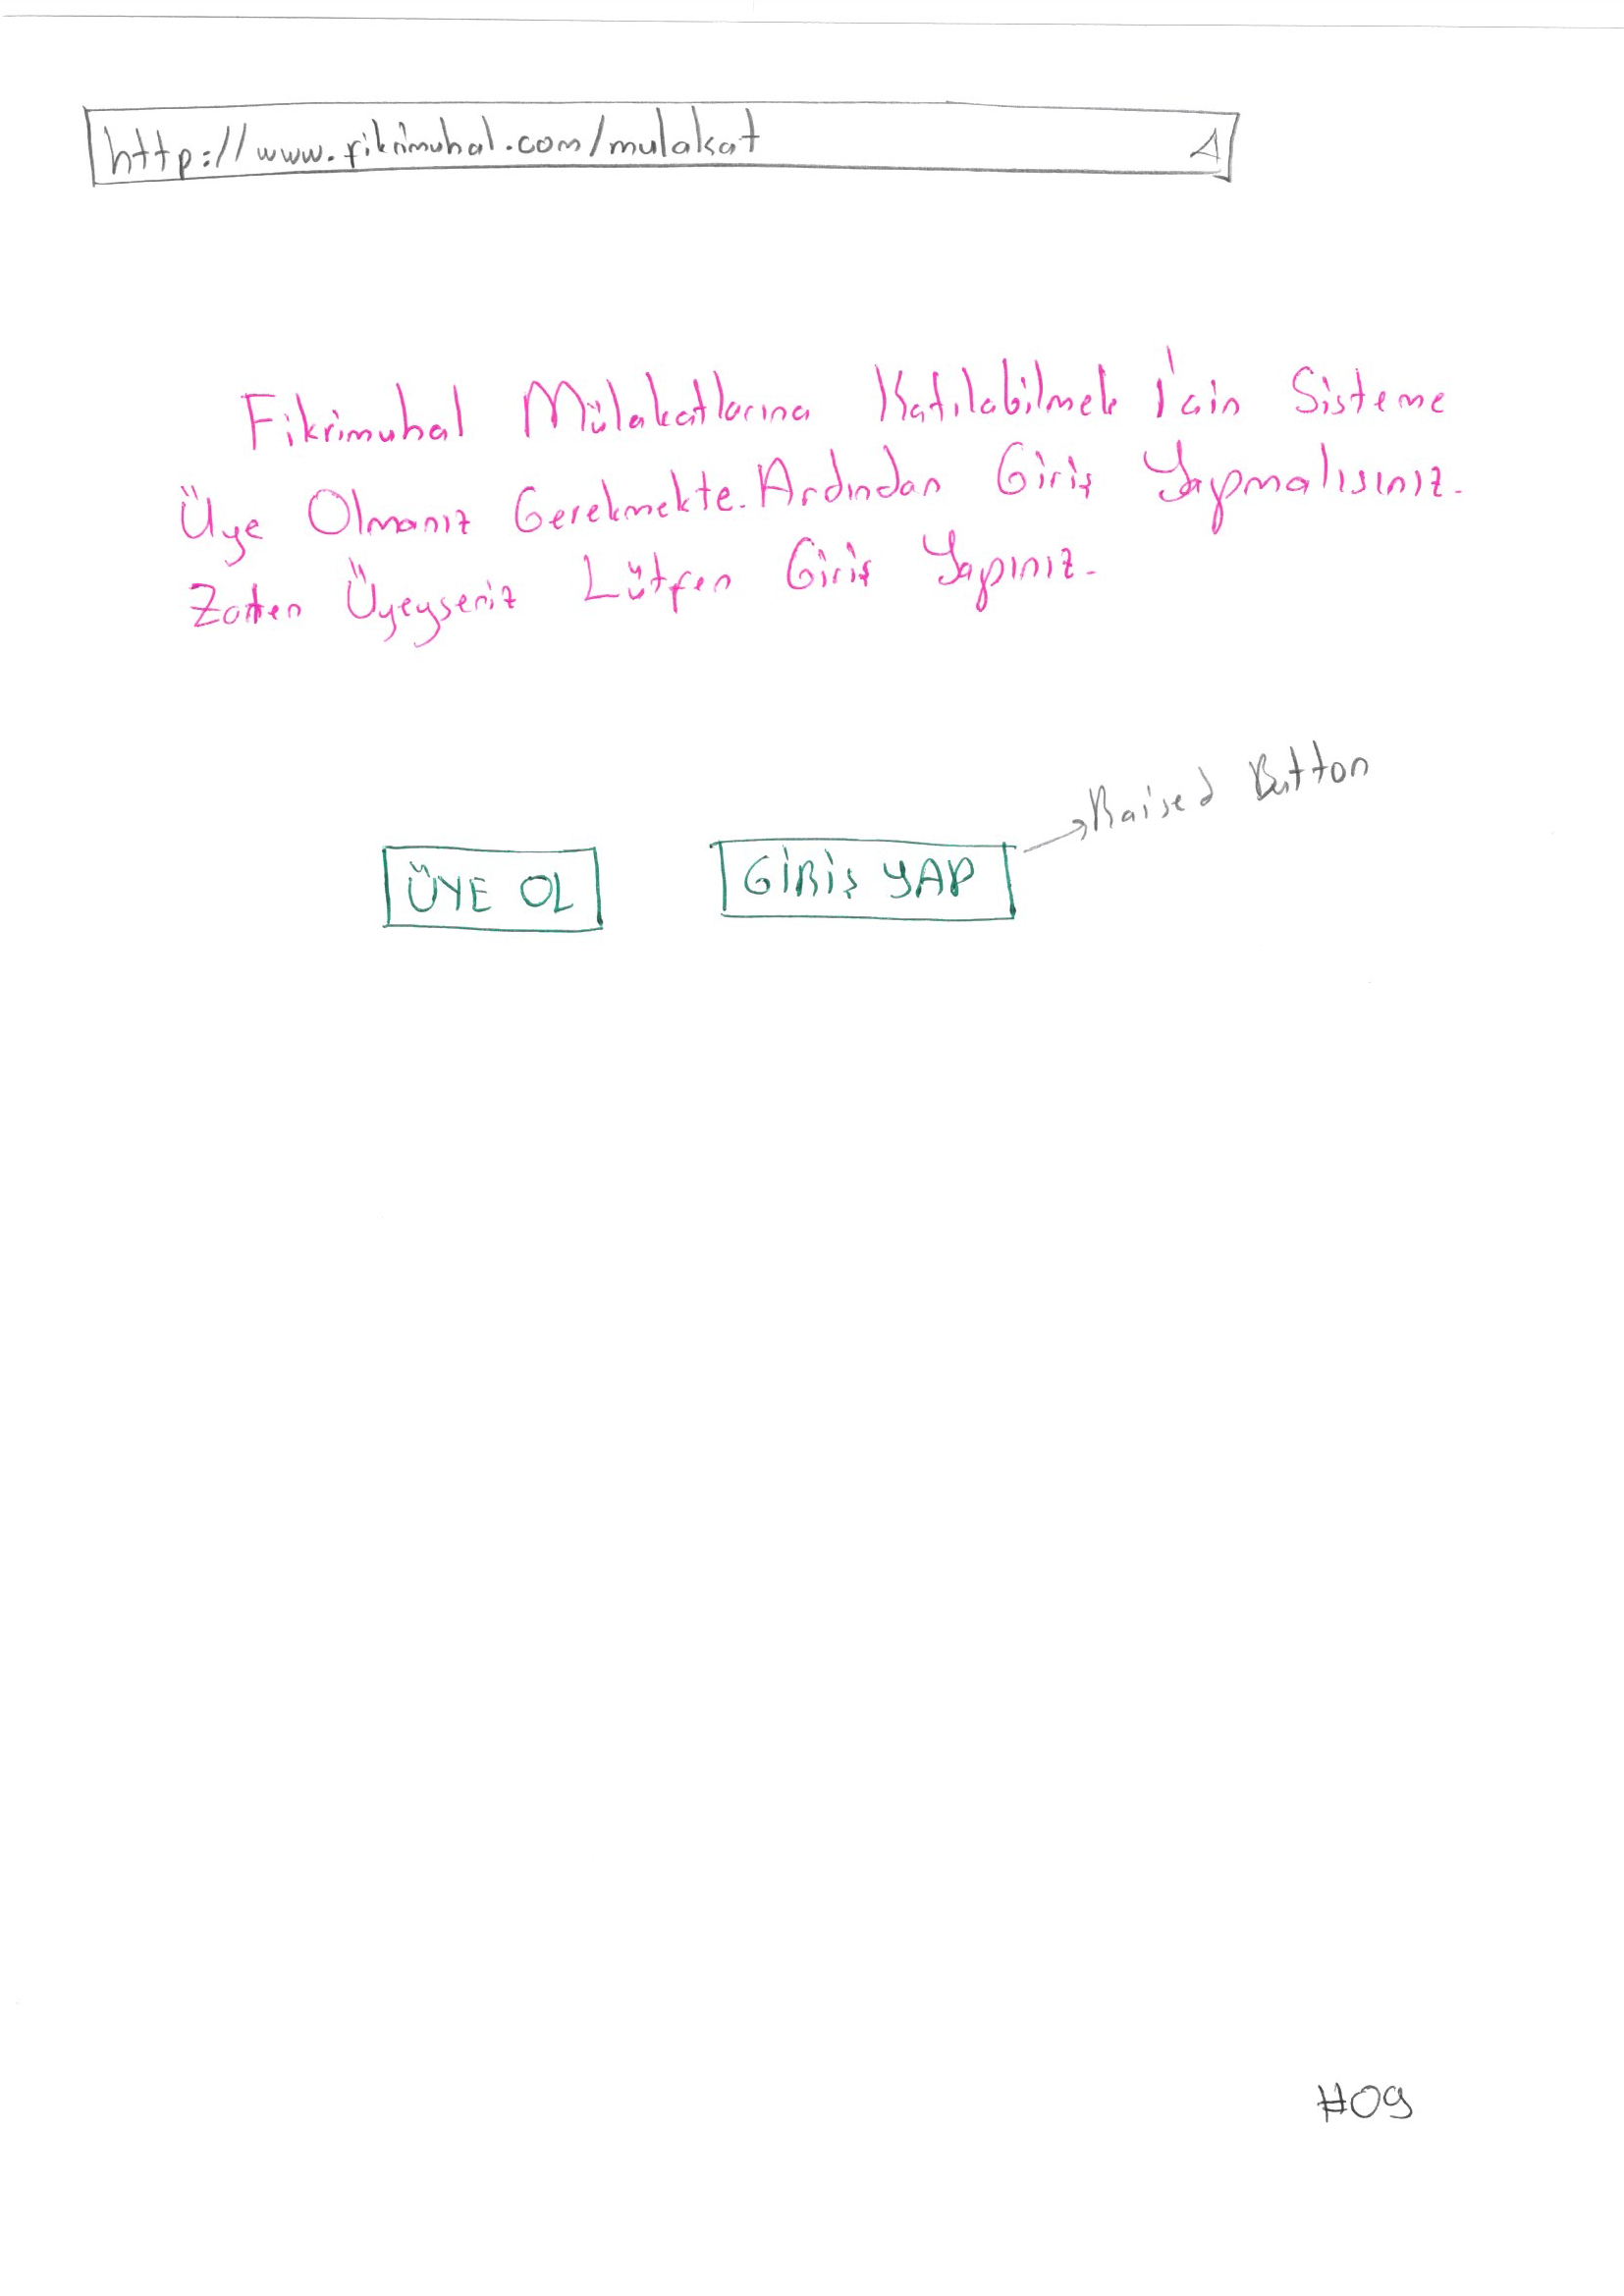 http://www.fikrimuhal.com/mulakat
Fikrimuhal Mülakatlarına Katılabilmek İçin Sisteme
Üye Olmanız Gerekmekte. Ardından Giriş Yapmalısınız.
Zaten Üyeyseniz Lütfen Giriş Yapınız.
Raised Button
ÜYE OL GİRİŞ YAP
#09